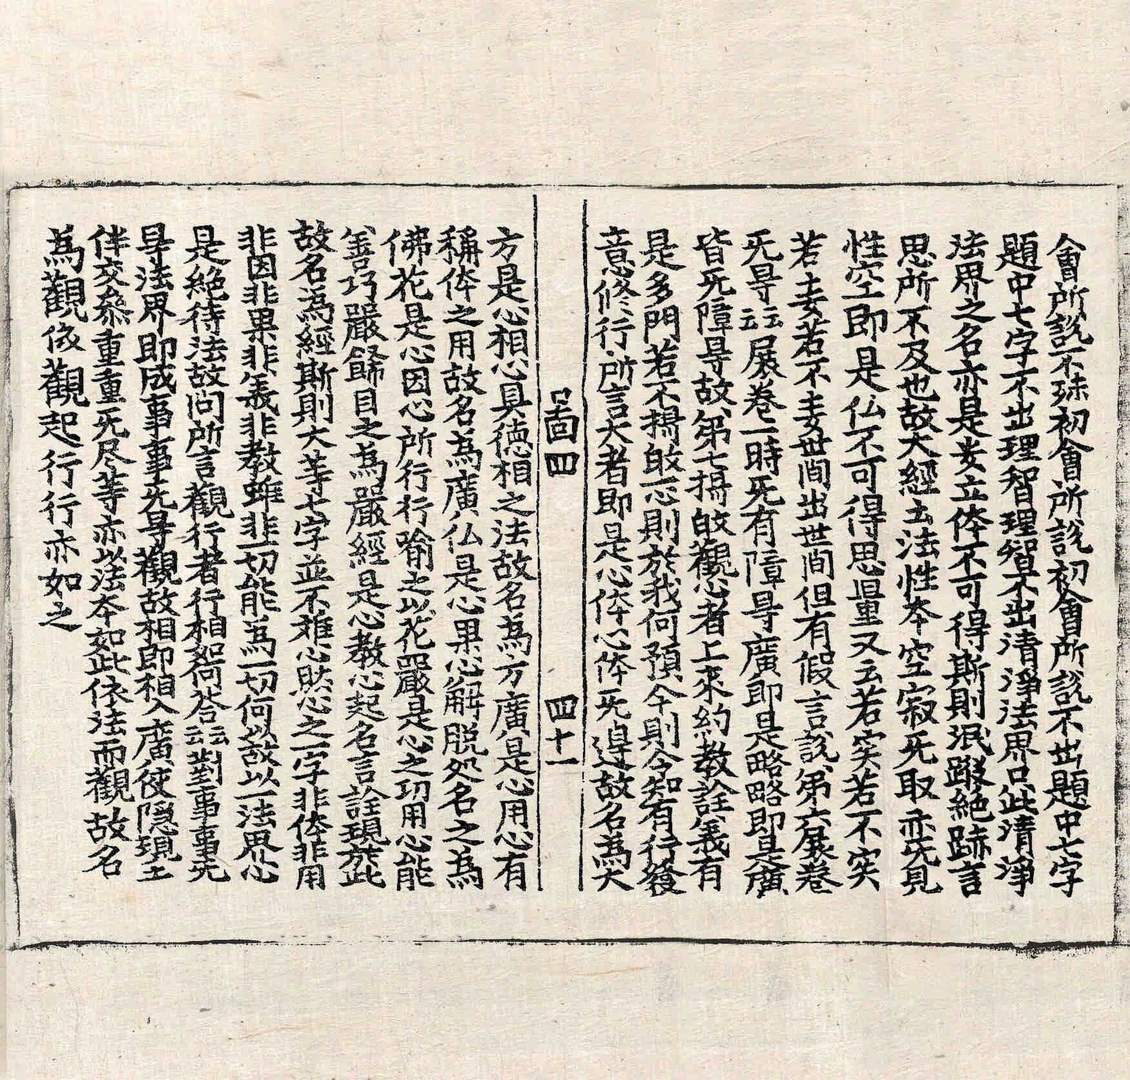 會所說不殊初會所說初會所說不出題中七字
題中七字不出理智理智不出清淨法界只此清淨
法界之名亦是妄立体不可得斯則泯跡絕跡言
思所不及也故大經云法性本空寂无取亦无見
性空即是仏不可得思量又云若实若不实
若妄若不妄世間出世間但有假言說第六展卷
无㝵云云展卷一時无有障㝵廣即是略略即是廣
皆无障㝵故第七攝敀觀心者上來約教詮義有
是多門若不攝敀心則於我何預今則令知有行發
意修行所言大者即是心体心体无邊故名為大
啚四
四十一
方是心相心具德相之法故名為方廣是心用心有
稱体之用故名為廣仏是心果心解脫処名之為
佛花是心因心所行行喻之以花嚴是心之功用心能
善巧嚴餙目之為嚴經是心教心起名言詮現於此
故名為經斯則大等七字並不離心然心之一字非体非用
非因非果非義非教雖非一切能為一切何以故以一法界心
是絶待法故問所言觀行者行相如何答云云對事事无
㝵法界即成事事无㝵觀故相即相入廣狹隱現主
伴交叅重重无尽等亦以法本如此依法而觀故名
為觀依觀起行行亦如之